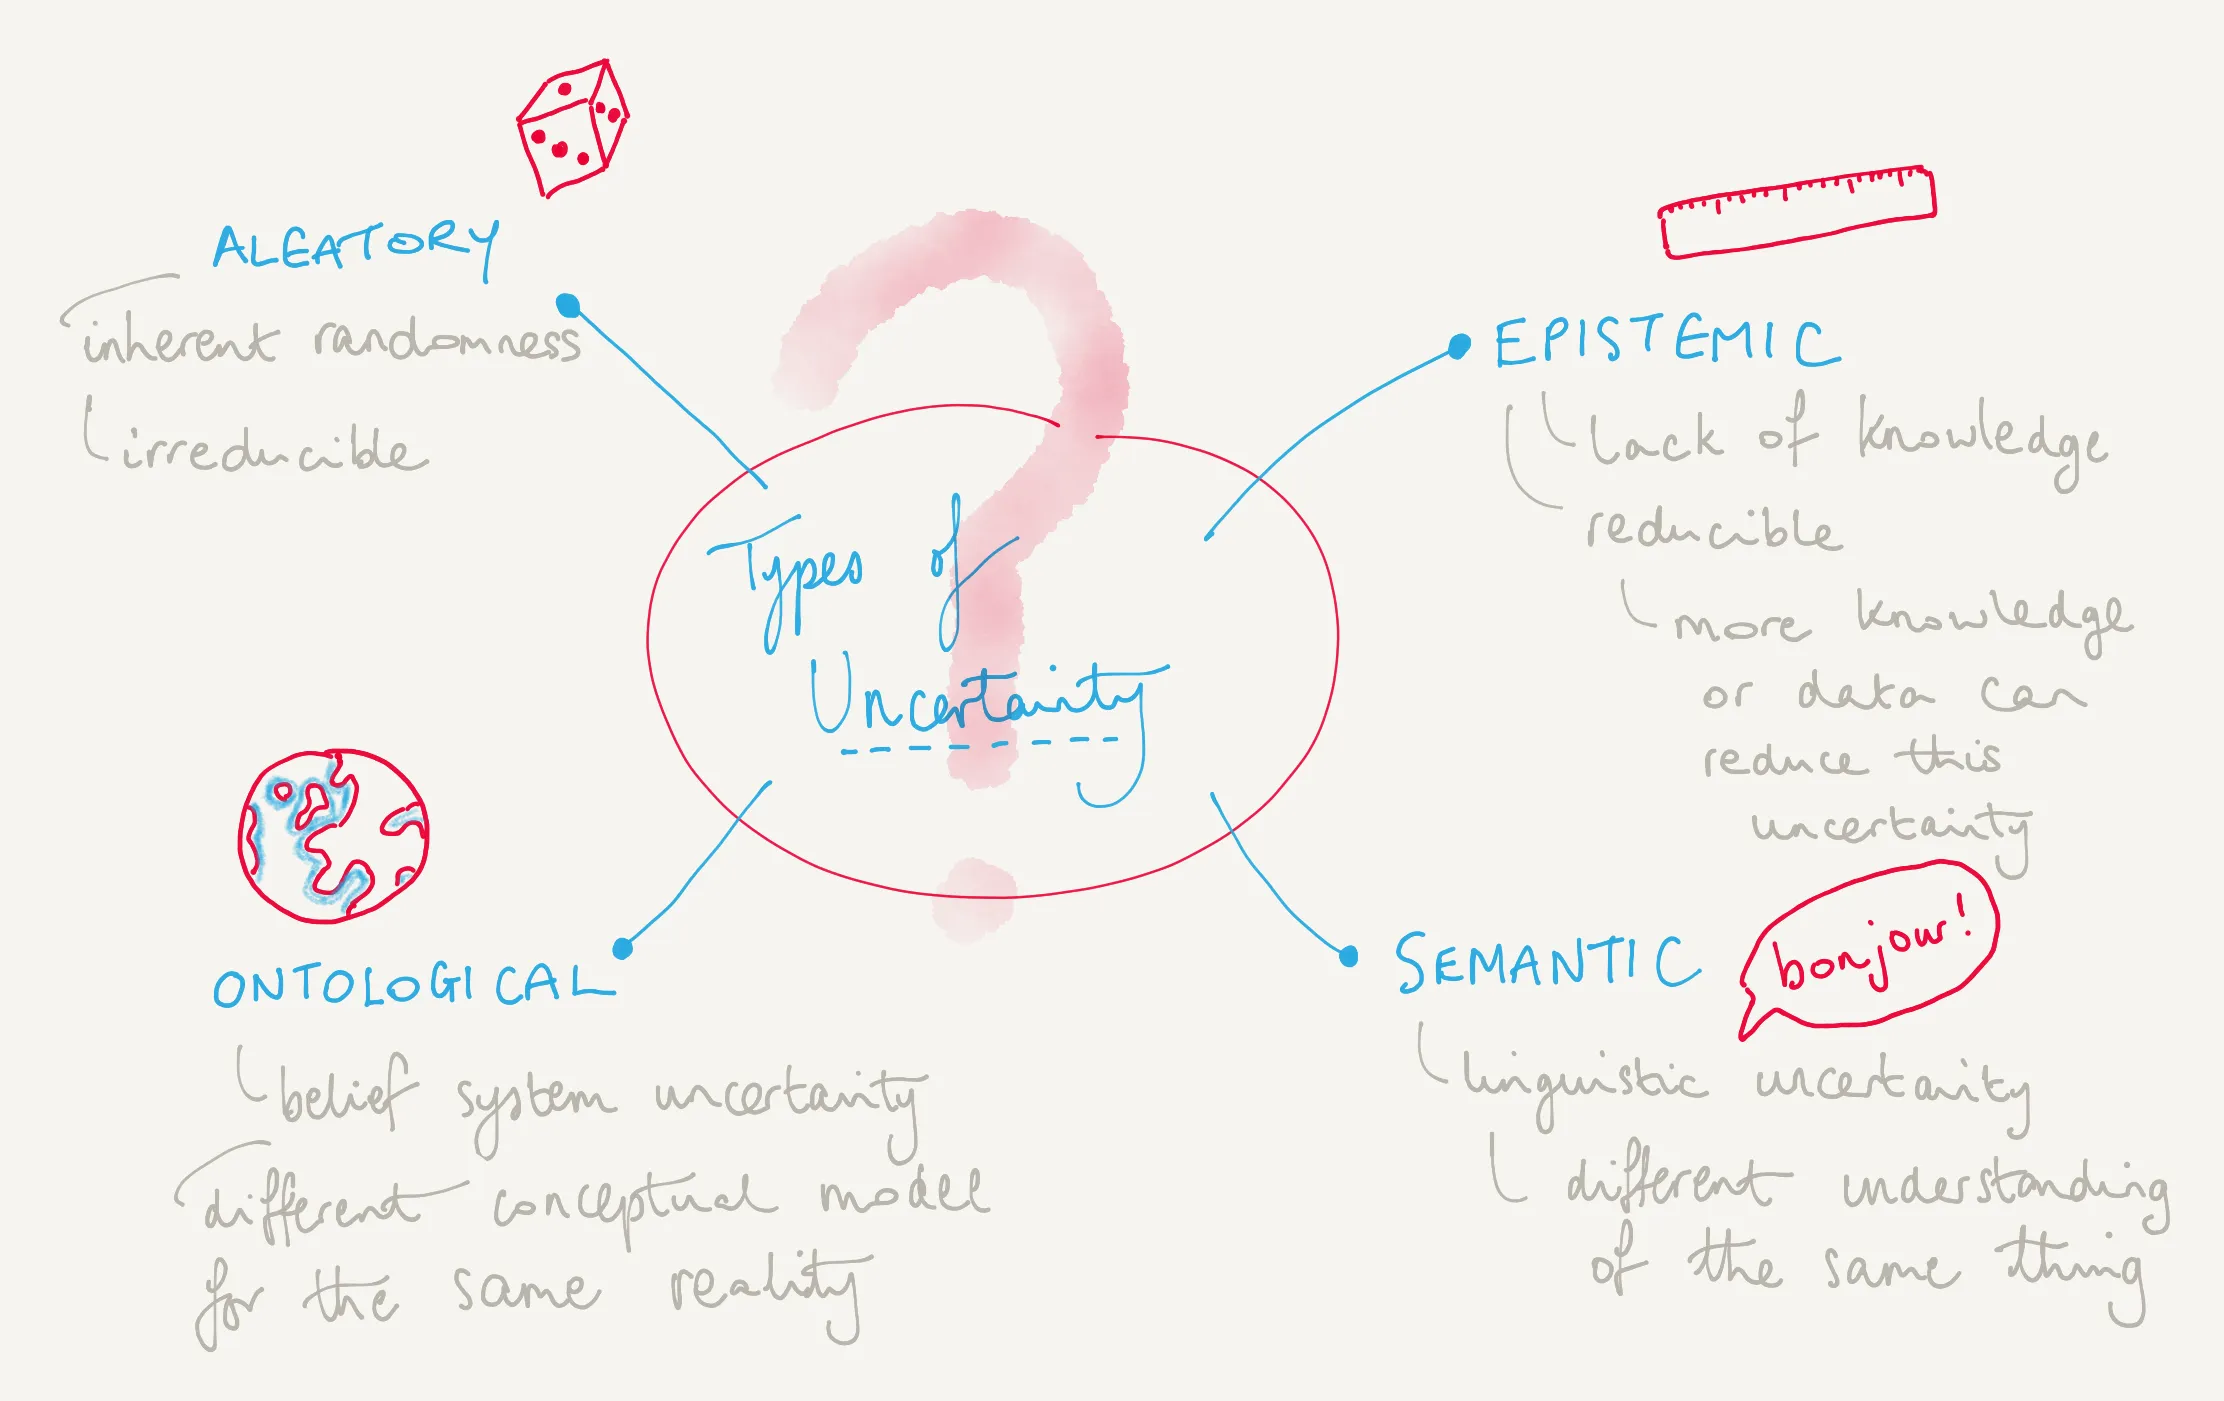 Types of
Uncertainty
ALEATORY
inherent randomness
irreducible
EPISTEMIC
lack of knowledge
reducible
more knowledge
or data can
reduce this
uncertainty
ONTOLOGICAL
belief system uncertainty
different conceptual model
for the same reality
SEMANTIC
bonjour!
linguistic uncertainty
different understanding
of the same thing